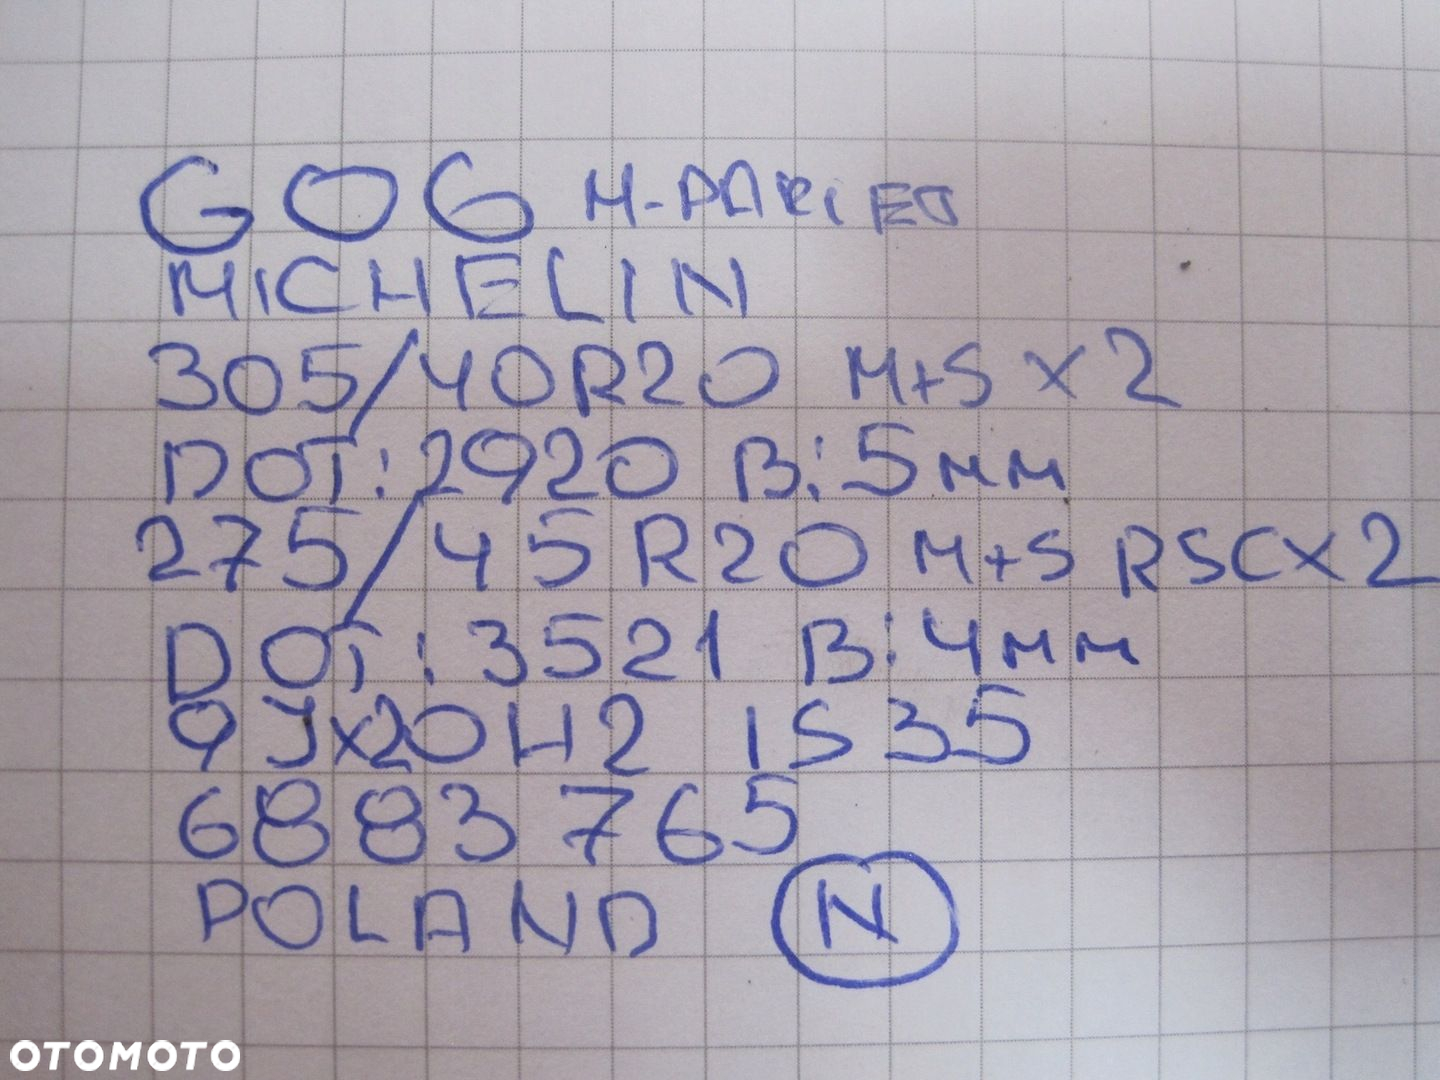 G06 M-PAKIET
MICHELIN
305/40R20 M+S X2
DOT: 2920 B: 5мм
275/45R20 M+S RSC X2
DOT: 3521 B: 4мм
9Jx20H2 IS35
6883765
POLAND N
OTOMOTO